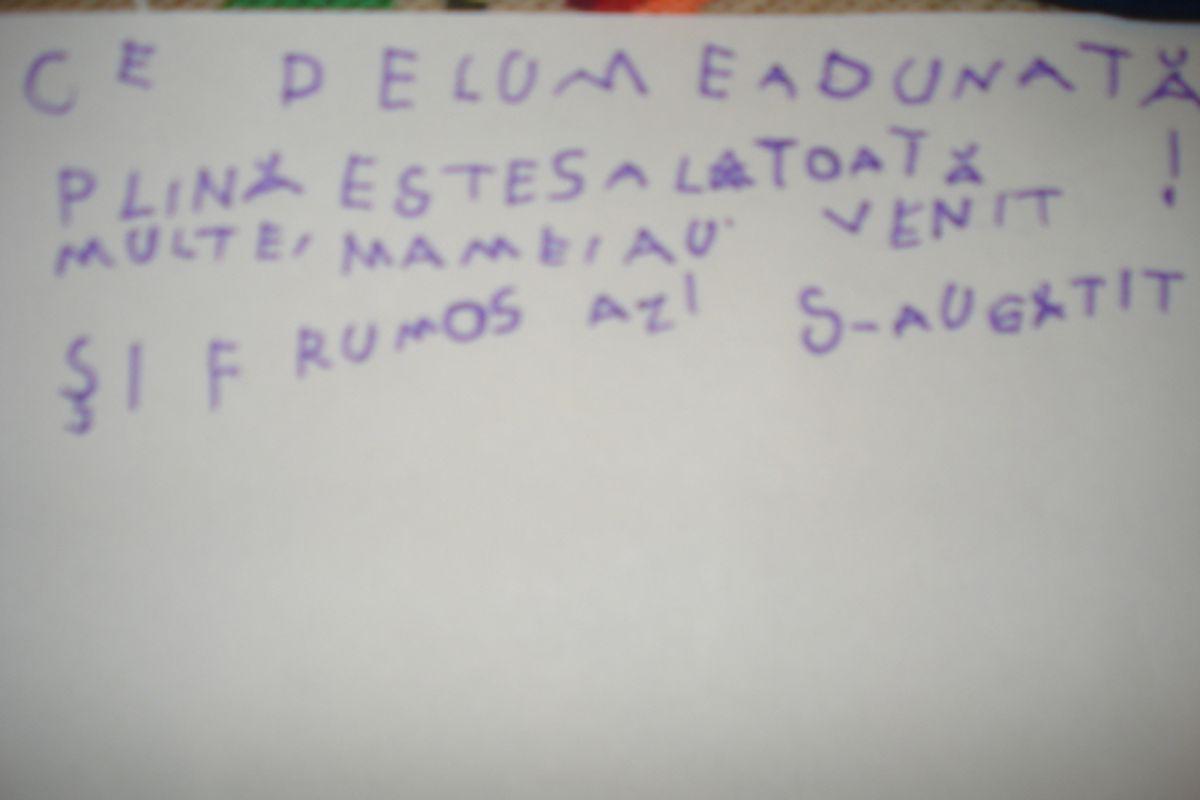 CE DE LUME ADUNATĂ
PLINĂ ESTE SALA TOATĂ!
MULTE, MAME, AU VENIT
ȘI FRUMOS AZI S-AU GĂTIT